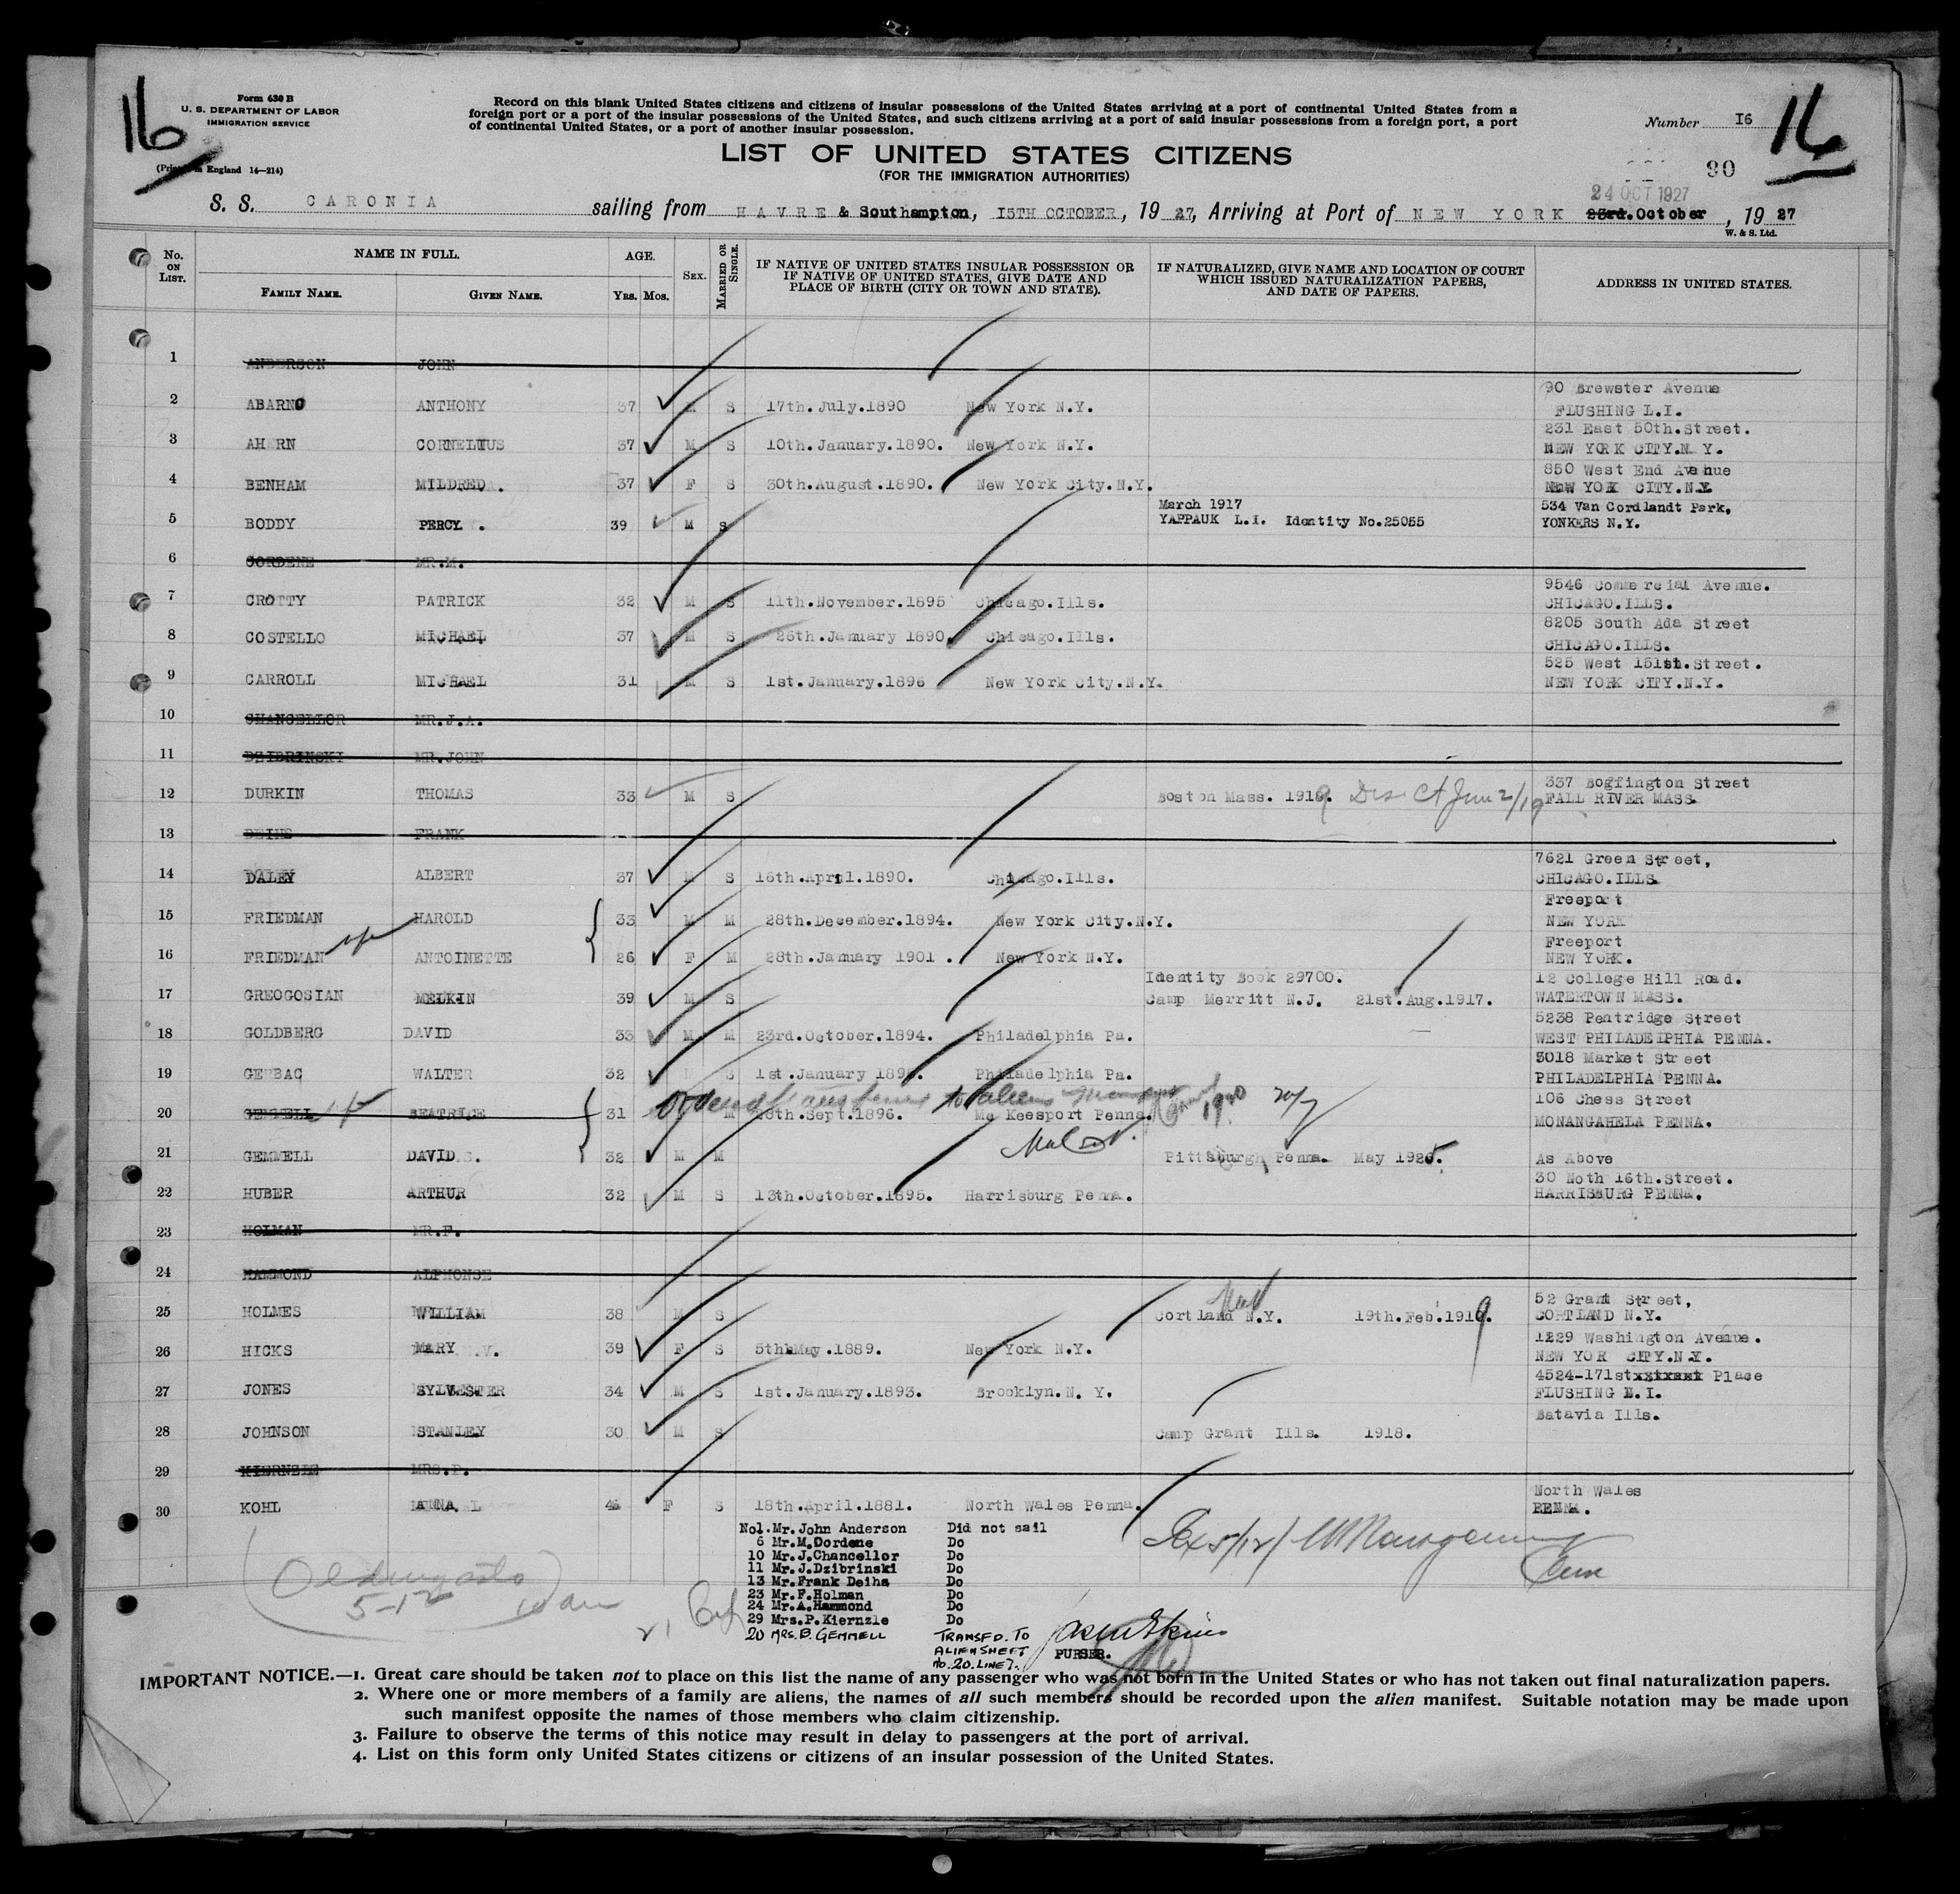 16
Form 630 B
U. S. DEPARTMENT OF LABOR
IMMIGRATION SERVICE
(Printed in England 14—214)
Record on this blank United States citizens and citizens of insular possessions of the United States arriving at a port of continental United States from a
foreign port or a port of the insular possessions of the United States, and such citizens arriving at a port of said insular possessions from a foreign port, a port
of continental United States, or a port of another insular possession.
Number I6
16
LIST OF UNITED STATES CITIZENS
(FOR THE IMMIGRATION AUTHORITIES)
90
24 OCT 1927
S. S. CARONIA sailing from HAVRE & Southampton, I5TH OCTOBER, 19 27, Arriving at Port of NEW YORK 23rd. October, 19 27
W. & S. Ltd.
No. ON LIST. NAME IN FULL. AGE. SEX. MARRIED OR SINGLE. IF NATIVE OF UNITED STATES INSULAR POSSESSION OR IF NATIVE OF UNITED STATES, GIVE DATE AND PLACE OF BIRTH (CITY OR TOWN AND STATE). IF NATURALIZED, GIVE NAME AND LOCATION OF COURT WHICH ISSUED NATURALIZATION PAPERS, AND DATE OF PAPERS. ADDRESS IN UNITED STATES.
FAMILY NAME. GIVEN NAME. YRS. MOS.
1 ANDERSON JOHN
90 Brewster Avenue
2 ABARNO ANTHONY 37 M S 17th.July.1890 New York N.Y. FLUSHING L.I.
231 East 50th.Street.
3 AHERN CORNELIUS 37 M S 10th.January.1890. New York N.Y. NEW YORK CITY.N.Y.
850 West End Avenue
4 BENHAM MILDRED. 37 F S 30th.August.1890. New York City.N.Y. NEW YORK CITY.N.Y.
March 1917 534 Van Cordlandt Park,
5 BODDY PERCY. 39 M S YAPPAUK L.I. Identity No.25055 YONKERS N.Y.
6 DORDENE MR.M.
9546 Commercial Avenue.
7 CROTTY PATRICK 32 M S 11th.November.1895 Chicago.Ills. CHICAGO.ILLS.
8205 South Ada Street
8 COSTELLO MICHAEL 37 M S 26th.January 1890. Chicago.Ills. CHICAGO.ILLS.
525 West 151st.Street.
9 CARROLL MICHAEL 31 M S 1st.January.1896 New York City.N.Y. NEW YORK CITY.N.Y.
10 CHANCELLOR MR.J.A.
11 DZIBRINSKY MR.JOHN
337 Boffington Street
12 DURKIN THOMAS 33 M S Boston Mass. 1919. Dis Ct June 2/19 FALL RIVER MASS.
13 DEIHS FRANK
7621 Green Street,
14 DALEY ALBERT 37 M S 16th.April.1890. Chicago.Ills. CHICAGO.ILLS.
Freeport
15 FRIEDMAN HAROLD 33 M M 28th.December.1894. New York City.N.Y. NEW YORK
Freeport
16 FRIEDMAN ANTOINETTE 26 F M 28th.January 1901. New York N.Y. NEW YORK.
Identity Book 29700. 12 College Hill Road.
17 GREOGOSIAN MELKIN 39 M S Camp Merritt N.J. 21st.Aug.1917. WATERTOWN MASS.
5238 Pentridge Street
18 GOLDBERG DAVID 33 M M 23rd.October.1894. Philadelphia Pa. WEST PHILADELPHIA PENNA.
3018 Market Street
19 GERBAC WALTER 32 M S 1st.January 1895. Philadelphia Pa. PHILADELPHIA PENNA.
106 Chess Street
20 GEMMELL BEATRICE 31 M 18th.Sept.1896. Mc Keesport Penna. 20/7 MONANGAHELA PENNA.
21 GEMMELL DAVID S. 32 M M Pittsburgh Penna. May 1925. As Above
30 Noth 16th.Street.
22 HUBER ARTHUR 32 M S 13th.October.1895. Harrisburg Penna. HARRISBURG PENNA.
23 HOLMAN MR.F.
24 HAMMOND ALPHONSE
52 Grant Street,
25 HOLMES WILLIAM 38 M S Cortland N.Y. 19th.Feb.1919. CORTLAND N.Y.
1229 Washington Avenue.
26 HICKS MARY V. 39 F S 5th May.1889. New York N.Y. NEW YOR CITY.N.Y.
4524-171st Place
27 JONES SYLVESTER 34 M S 1st.January.1893. Brooklyn.N. Y. FLUSHING L.I.
Batavia Ills.
28 JOHNSON STANLEY 30 M S Camp Grant Ills. 1918.
29 KIERNZLE MRS.P.
North Wales
30 KOHL ANNA L 46 F S 18th.April.1881. North Wales Penna. PENNA.
No1.Mr.John Anderson Did not sail
6 Mr.M.Dordene Do
10 Mr.J.Chancellor Do
11 Mr.J.Dzibrinski Do
13 Mr.Frank Deihs Do
23 Mr.F.Holman Do
24 Mr.A.Hammond Do
29 Mrs.P.Kiernzle Do
20 MRS. B. GEMMELL TRANSFD. TO
ALIEN SHEET
No. 20. LINE 7.
PURSER.
5-12
IMPORTANT NOTICE.—1. Great care should be taken not to place on this list the name of any passenger who was not born in the United States or who has not taken out final naturalization papers.
2. Where one or more members of a family are aliens, the names of all such members should be recorded upon the alien manifest. Suitable notation may be made upon
such manifest opposite the names of those members who claim citizenship.
3. Failure to observe the terms of this notice may result in delay to passengers at the port of arrival.
4. List on this form only United States citizens or citizens of an insular possession of the United States.